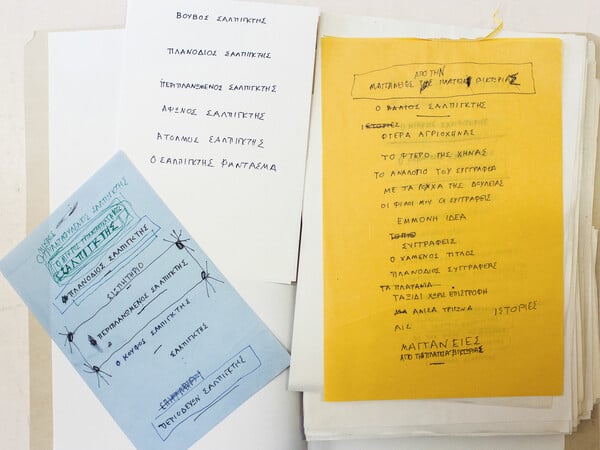 ΒΟΥΒΟΣ ΣΑΛΠΙΓΚΤΗΣ
ΠΛΑΝΟΔΙΟΣ ΣΑΛΠΙΓΚΤΗΣ
ΠΕΡΙΠΛΑΝΩΜΕΝΟΣ ΣΑΛΠΙΓΚΤΗΣ
ΑΦΩΝΟΣ ΣΑΛΠΙΓΚΤΗΣ
ΑΤΟΛΜΟΣ ΣΑΛΠΙΓΚΤΗΣ
Ο ΣΑΛΠΙΓΚΤΗΣ ΦΑΝΤΑΣΜΑ
ΣΑΛΠΙΓΚΤΗΣ
Ο
ΣΑΛΠΙΓΚΤΗΣ
ΠΛΑΝΟΔΙΟΣ ΣΑΛΠΙΓΚΤΗΣ
ΕΙΣΙΤΗΡΙΟ
ΠΕΡΙΠΛΑΝΩΜΕΝΟΣ ΣΑΛΠΙΓΚΤΗΣ
Ο ΚΟΥΦΟΣ ΣΑΛΠΙΓΚΤΗΣ
ΣΑΛΠΙΓΚΤΗΣ
ΠΕΡΙΟΔΕΥΩΝ ΣΑΛΠΙΓΚΤΗΣ
ΑΠΟ ΤΗΝ
ΜΑΓΓΑΝΕΙΕΣ ΠΛΑΤΕΙΑ ΒΙΚΤΩΡΙΑΣ
Ο ΣΑΛΠΙΓΚΤΗΣ
ΙΣΤΟΡΙΕΣ
ΦΤΕΡΑ ΑΓΡΙΟΧΗΝΑΣ
ΤΟ ΦΤΕΡΟ ΤΗΣ ΧΗΝΑΣ
ΤΟ ΑΝΑΛΟΓΙΟ ΤΟΥ ΣΥΓΓΡΑΦΕΑ
ΜΕ ΤΑ ΡΟΥΧΑ ΤΗΣ ΔΟΥΛΕΙΑΣ
ΟΙ ΦΙΛΟΙ ΜΟΥ ΟΙ ΣΥΓΓΡΑΦΕΙΣ
ΕΜΜΟΝΗ ΙΔΕΑ
ΣΥΓΓΡΑΦΕΙΣ
Ο ΧΑΜΕΝΟΣ ΤΙΤΛΟΣ
ΠΛΑΝΟΔΙΟΣ ΣΥΓΓΡΑΦΕΑΣ
ΤΑ ΠΛΑΤΑΝΙΑ
ΤΑΞΙΔΙ ΧΩΡΙΣ ΕΠΙΣΤΡΟΦΗ
ΙΣΤΟΡΙΕΣ
ΜΑΓΓΑΝΕΙΕΣ
ΑΠΟ ΤΗΝ ΠΛΑΤΕΙΑ ΒΙΚΤΩΡΙΑΣ